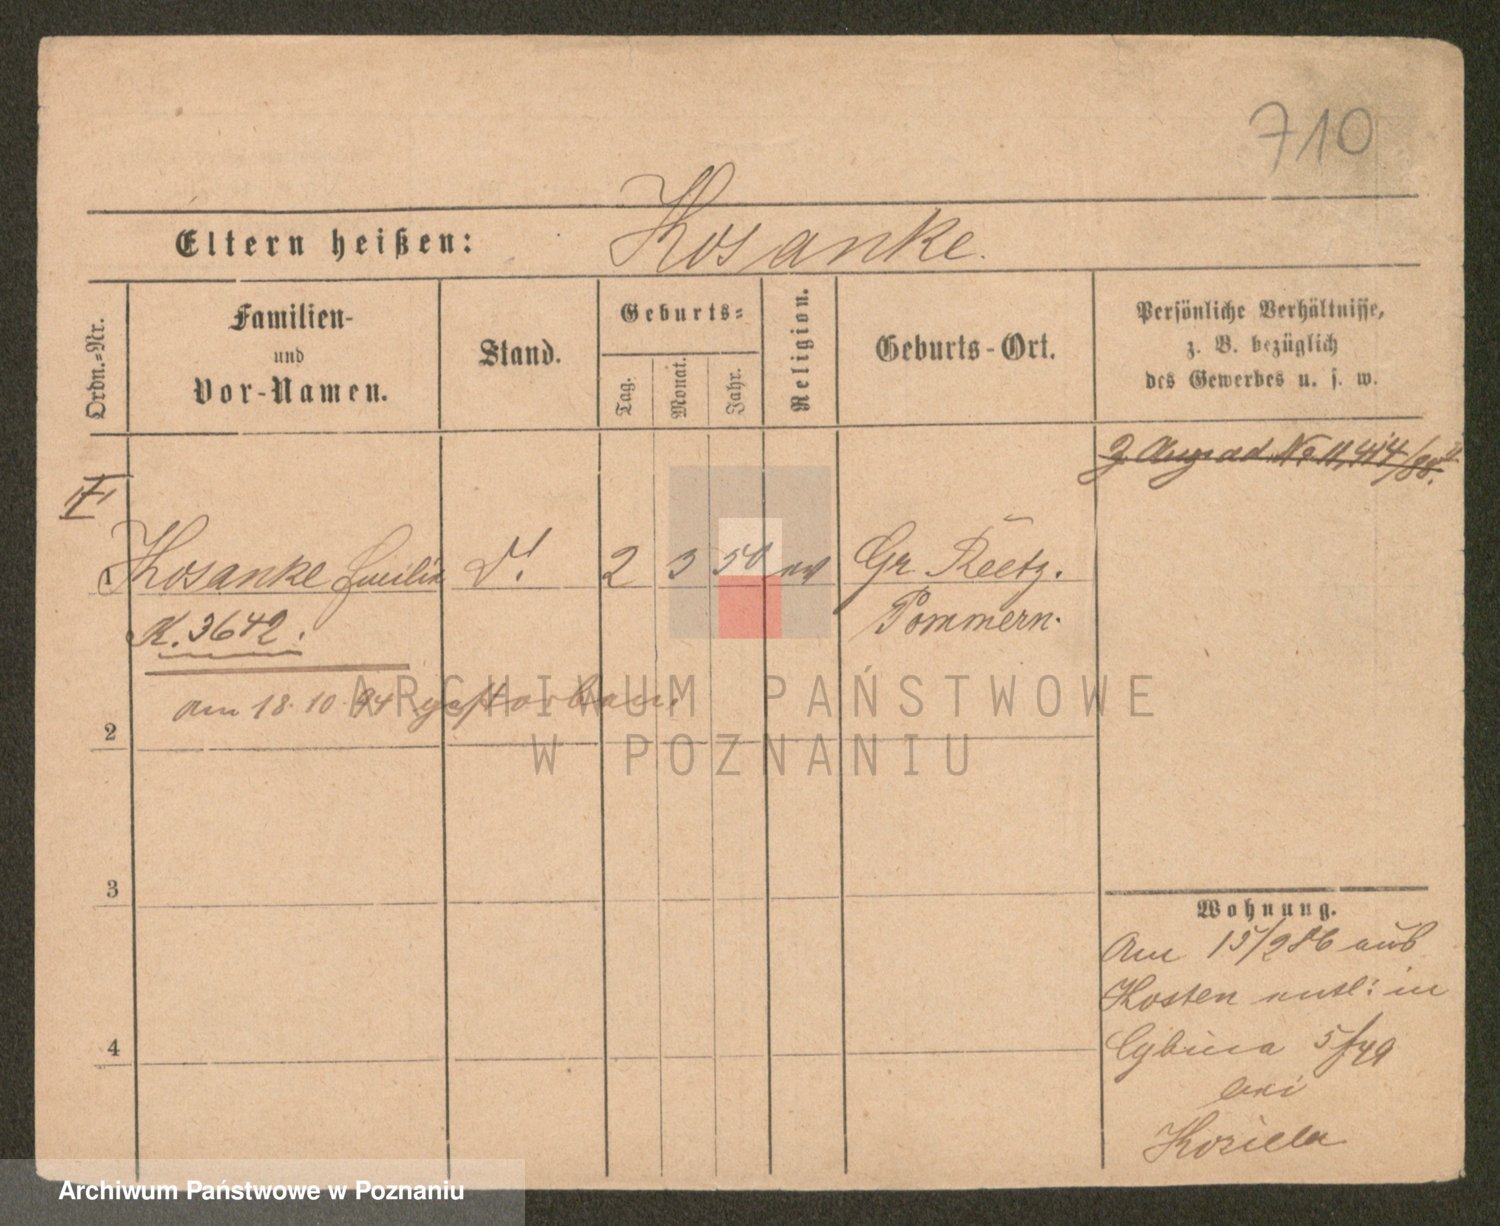 710
Eltern heißen: Kosanke.
Ordn.-Nr.
Familien-
und
Vor-Namen.
Stand.
Geburts-
Tag.
Monat.
Jahr.
Religion.
Geburts-Ort.
Persönliche Verhältnisse,
z. B. bezüglich
des Gewerbes u. s. w.
1 Kosanke Emilie d! 2 3 50 ev Gr Reetz.
Pommern.
K. 3642.
am 18.10.94 gestorben.
2
3
4
Wohnung.
Am 15/2 86 aus
Kosten entl: in
Cybina 5/49
bei
Koziella
ARCHIWUM PAŃSTWOWE
W POZNANIU
Archiwum Państwowe w Poznaniu